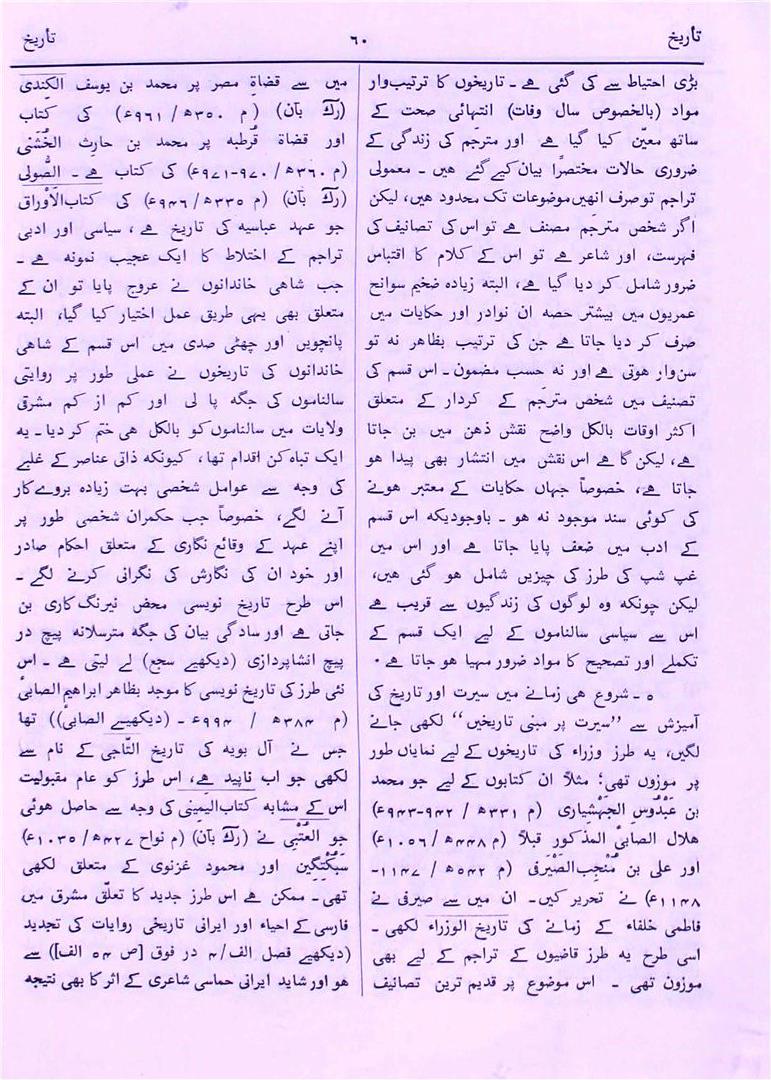 تأریخ
٦٠
تأریخ
بڑی احتیاط سے کی گئی ہے ۔ تاریخوں کا ترتیب‌وار
مواد (بالخصوص سال وفات) انتہائی صحت کے
ساتھ معیّن کیا گیا ہے اور مترجم کی زندگی کے
ضروری حالات مختصرًا بیان کیے گئے ہیں ۔ معمولی
تراجم تو صرف انھیں موضوعات تک محدود ہیں، لیکن
اگر شخص مترجَم مصنف ہے تو اس کی تصانیف کی
فہرست، اور شاعر ہے تو اس کے کلام کا اقتباس
ضرور شامل کر دیا گیا ہے، البتہ زیادہ ضخیم سوانح
عمریوں میں بیشتر حصہ ان نوادر اور حکایات میں
صرف کر دیا جاتا ہے جن کی ترتیب بظاہر نہ تو
سن‌وار ہوتی ہے اور نہ حسب مضمون ۔ اس قسم کی
تصنیف میں شخص مترجَم کے کردار کے متعلق
اکثر اوقات بالکل واضح نقش ذہن میں بن جاتا
ہے، لیکن گاہے اس نقش میں انتشار بھی پیدا ہو
جاتا ہے، خصوصاً جہاں حکایات کے معتبر ہونے
کی کوئی سند موجود نہ ہو ۔ باوجودیکہ اس قسم
کے ادب میں ضعف پایا جاتا ہے اور اس میں
غپ شپ کی طرز کی چیزیں شامل ہو گئی ہیں،
لیکن چونکہ وہ لوگوں کی زندگیوں سے قریب ہے
اس سے سیاسی سالناموں کے لیے ایک قسم کے
تکملے اور تصحیح کا مواد ضرور مہیا ہو جاتا ہے ۰
٥ ۔ شروع ہی زمانے میں سیرت اور تاریخ کی
آمیزش سے ”سیرت پر مبنی تاریخیں“ لکھی جانے
لگیں، یہ طرز وزراء کی تاریخوں کے لیے نمایاں طور
پر موزوں تھی؛ مثلاً ان کتابوں کے لیے جو محمد
بن عَبْدُوس الجَہْشیاری (م ٣٣١ھ / ٩٤٢-٩٤٣ء)
ھلال الصابیٔ المذکور قبلاً (م ٤٤٨ھ/١٠٥٦ء)
اور علی بن مُنْجِب‌الصَیْرَفی (م ٥٤٢ھ / ١١٤٧-
١١٤٨ء) نے تحریر کیں۔ ان میں سے صیرفی نے
فاطمی خلفاء کے زمانے کی تاریخ الوزراء لکھی ۔
اسی طرح یہ طرز قاضیوں کے تراجم کے لیے بھی
موزون تھی ۔ اس موضوع پر قدیم ترین تصانیف
میں سے قضاۃ مصر پر محمد بن یوسف الکِنْدی
(رکّ بآن) (م ٣٥٠ھ/ ٩٦١ء) کی کتاب
اور قضاۃ قُرطبہ پر محمد بن حارث الخُشَنی
(م ٣٦٠ھ/ ٩٧٠-٩٧١ء) کی کتاب ہے ۔ الصُّولی
(رکّ بآن) (م ٣٣٥ھ/ ٩٤٦ء) کی کتاب‌الاَوْراق
جو عہد عباسیہ کی تاریخ ہے، سیاسی اور ادبی
تراجم کے اختلاط کا ایک عجیب نمونہ ہے ۔
جب شاہی خاندانوں نے عروج پایا تو ان کے
متعلق بھی یہی طریق عمل اختیار کیا گیا، البتہ
پانچویں اور چھٹی صدی میں اس قسم کے شاہی
خاندانوں کی تاریخوں نے عملی طور پر روایتی
سالناموں کی جگہ پا لی اور کم از کم مشرقی
ولایات میں سالناموں کو بالکل ہی ختم کر دیا ۔ یہ
ایک تباہ کن اقدام تھا، کیونکہ ذاتی عناصر کے غلبے
کی وجہ سے عوامل شخصی بہت زیادہ بروے‌کار
آنے لگے، خصوصاً جب حکمران شخصی طور پر
اپنے عہد کے وقائع نگاری کے متعلق احکام صادر
اور خود ان کی نگارش کی نگرانی کرنے لگے ۔
اس طرح تاریخ نویسی محض نیرنگ کاری بن
جاتی ہے اور سادگی بیان کی جگہ مترسلانہ پیچ در
پیچ انشاپردازی (دیکھیے سجع) لے لیتی ہے ۔ اس
نئی طرز کی تاریخ نویسی کا موجد بظاہر ابراہیم الصابیٔ
(م ٣٨٤ھ / ٩٩٤ء ۔ (دیکھیے الصابیٔ)) تھا
جس نے آل بویہ کی تاریخ التّاجی کے نام سے
لکھی جو اب ناپید ہے، اس طرز کو عام مقبولیت
اس کے مشابہ کتاب‌الیمینی کی وجہ سے حاصل ہوئی
جو العُتْبی نے (رکّ بآن) (م نواح ٤٢٧ھ/١٠٣٥ء)
سَبُکْتگِین اور محمود غزنوی کے متعلق لکھی
تھی ۔ ممکن ہے اس طرز جدید کا تعلّق مشرق میں
فارسی کے احیاء اور ایرانی تاریخی روایات کی تجدید
(دیکھیے فصل الف/٤ در فوق [ص ٥٤ الف]) سے
ہو اور شاید ایرانی حماسی شاعری کے اثر کا بھی نتیجہ